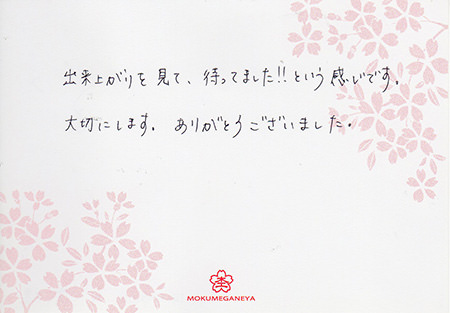 出来上がりを見て、待ってました!!という感じです。
大切にします。ありがとうございました。
MOKUMEGANEYA